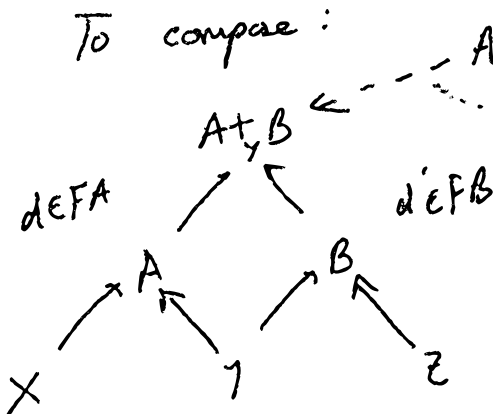 To compose :
A
A+ᵧB
d∈FA
d'∈FB
A
B
X
Y
Z